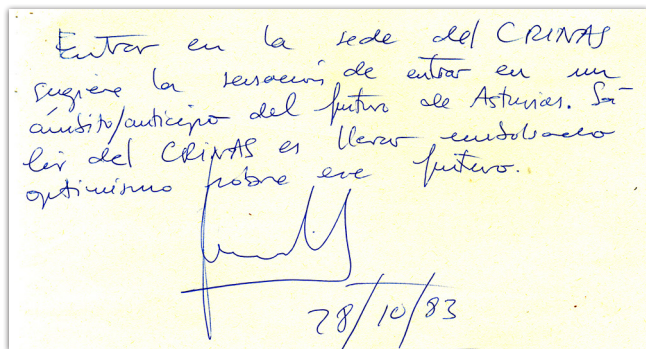 Entrar en la sede del CRINAS
sugiere la sensación de entrar en un
ámbito/anticipo del futuro de Asturias. Sa-
lir del CRINAS es llevar embolsado
optimismo sobre ese futuro.
28/10/83